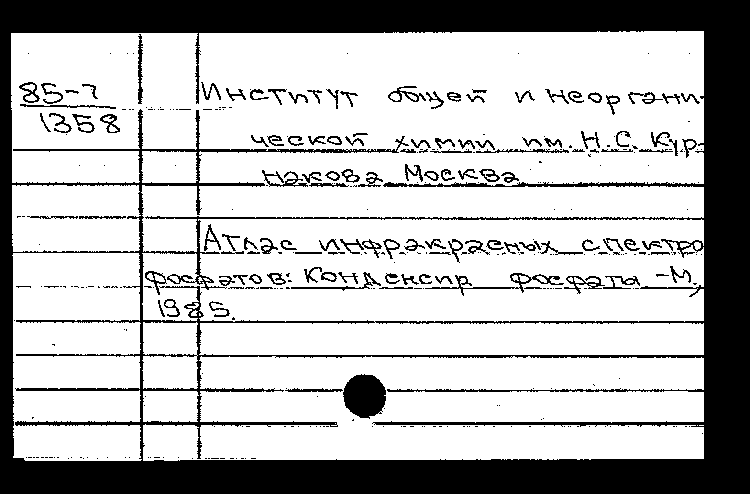 85-7
1358
Институт общей и неоргани-
ческой химии им. Н.С. Кур-
накова. Москва
Атлас инфракрасных спектро
фосфатов: Конденсир фосфаты -М.,
1985.